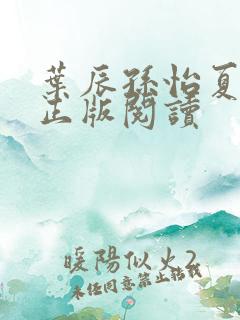 葉辰孫怡夏
正版閱讀
暖陽似火2
未經同意禁止轉載